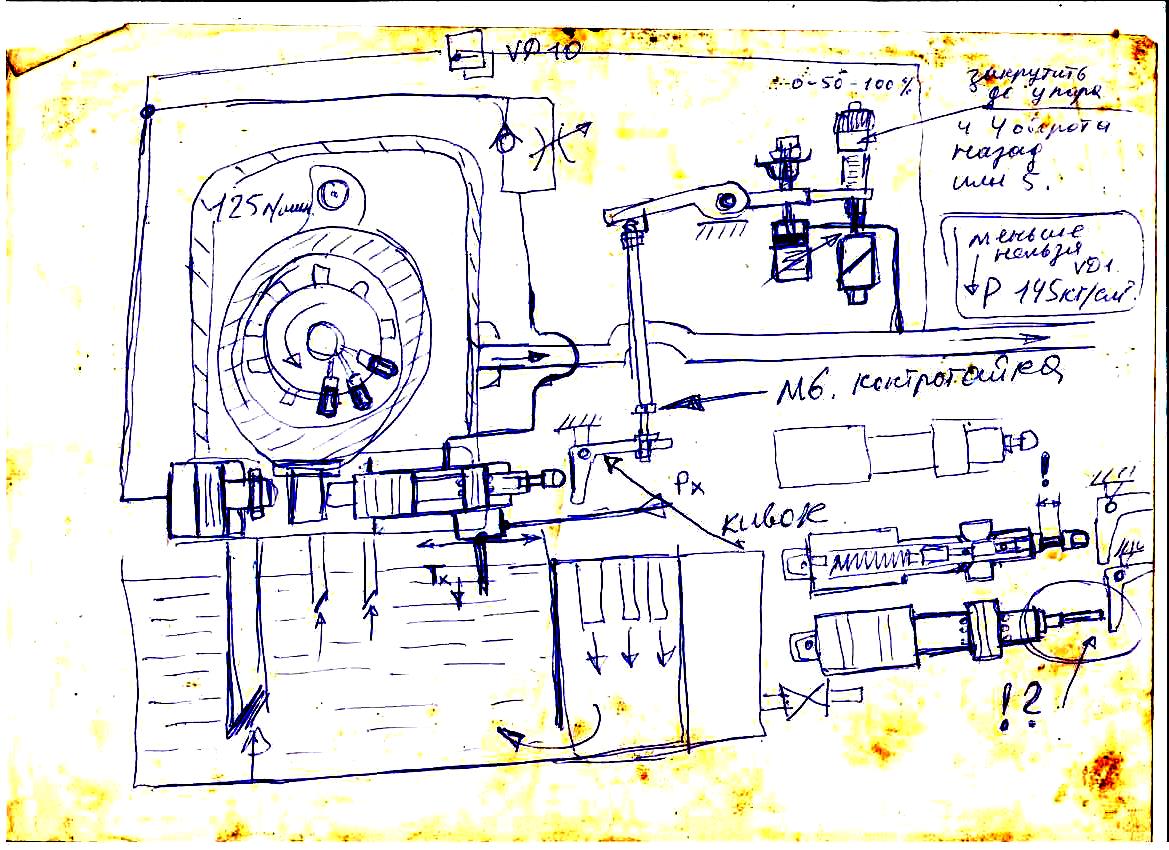 VД10
0-50-100%
закрутить
до упора
и 4 оборота
назад
или 5.
425 л/мин
меньше
нельзя
VД1.
P 145кг/см².
М6. контргайка
Рх
кивок
!
Тх
!?